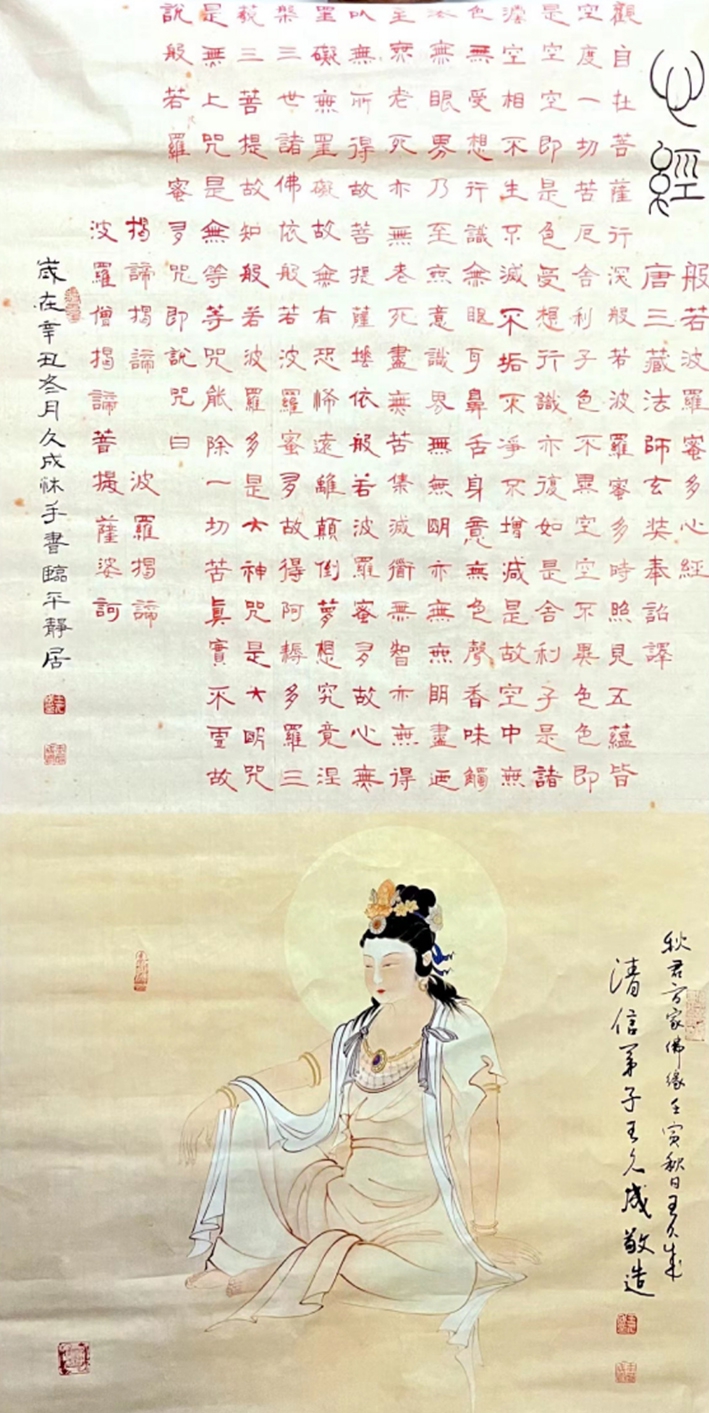 心經
般若波羅蜜多心經
唐三藏法師玄奘奉詔譯
觀自在菩薩行深般若波羅蜜多時照見五蘊皆
空度一切苦厄舍利子色不異空空不異色色即
是空空即是色受想行識亦復如是舍利子是諸
灋空相不生不滅不垢不淨不增減是故空中無
色無受想行識無眼耳鼻舌身意無色聲香味觸
法無眼界乃至無意識界無無明亦無無明盡迺
至無老死亦無老死盡無苦集滅衟無智亦無得
以無所得故菩提薩埵依般若波羅蜜多故心無
罣礙無罣礙故無有恐怖遠離顛倒夢想究竟涅
槃三世諸佛依般若波羅蜜多故得阿耨多羅三
藐三菩提故知般若波羅多是大神咒是大明咒
是無上咒是無等等咒能除一切苦真實不虛故
說般若羅蜜多咒即說咒曰
揭諦揭諦 波羅揭諦
波羅僧揭諦菩提薩婆訶
歲在辛丑冬月久成沐手書臨平靜居
秋君方家佛緣壬寅秋日王久成
清信弟子王久成敬造